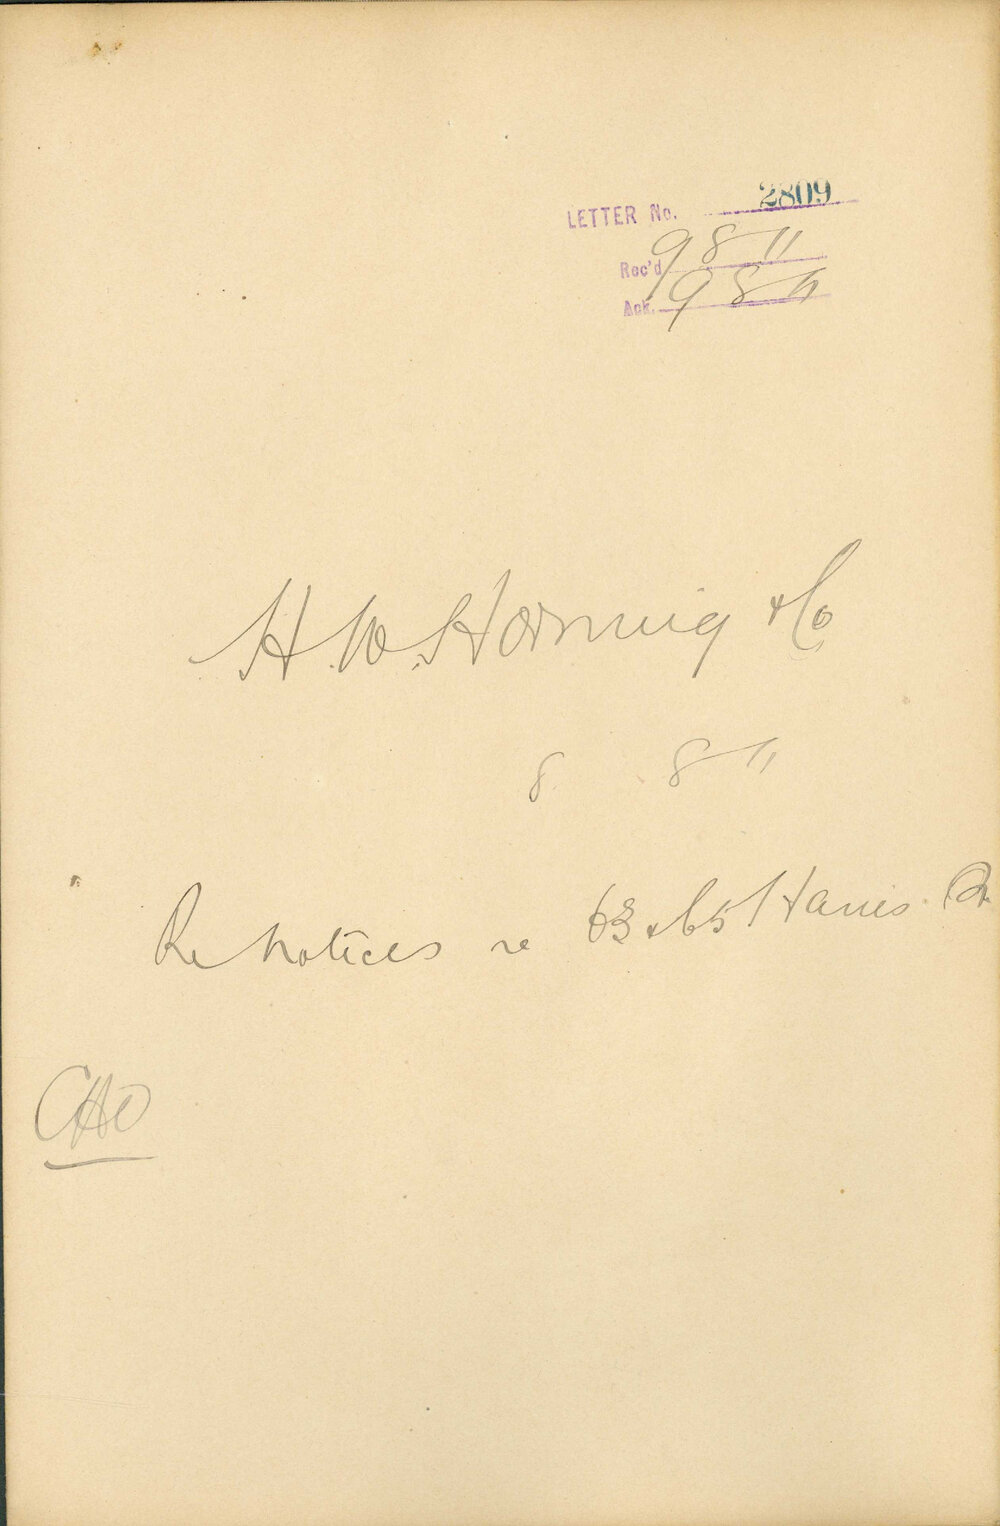 LETTER No. 2809
Rec'd 9 8 11
Ack. 9 8 11
H. W. Horning & Co
8 8 11
Re Notices re 63 & 65 Harris St.
CHO